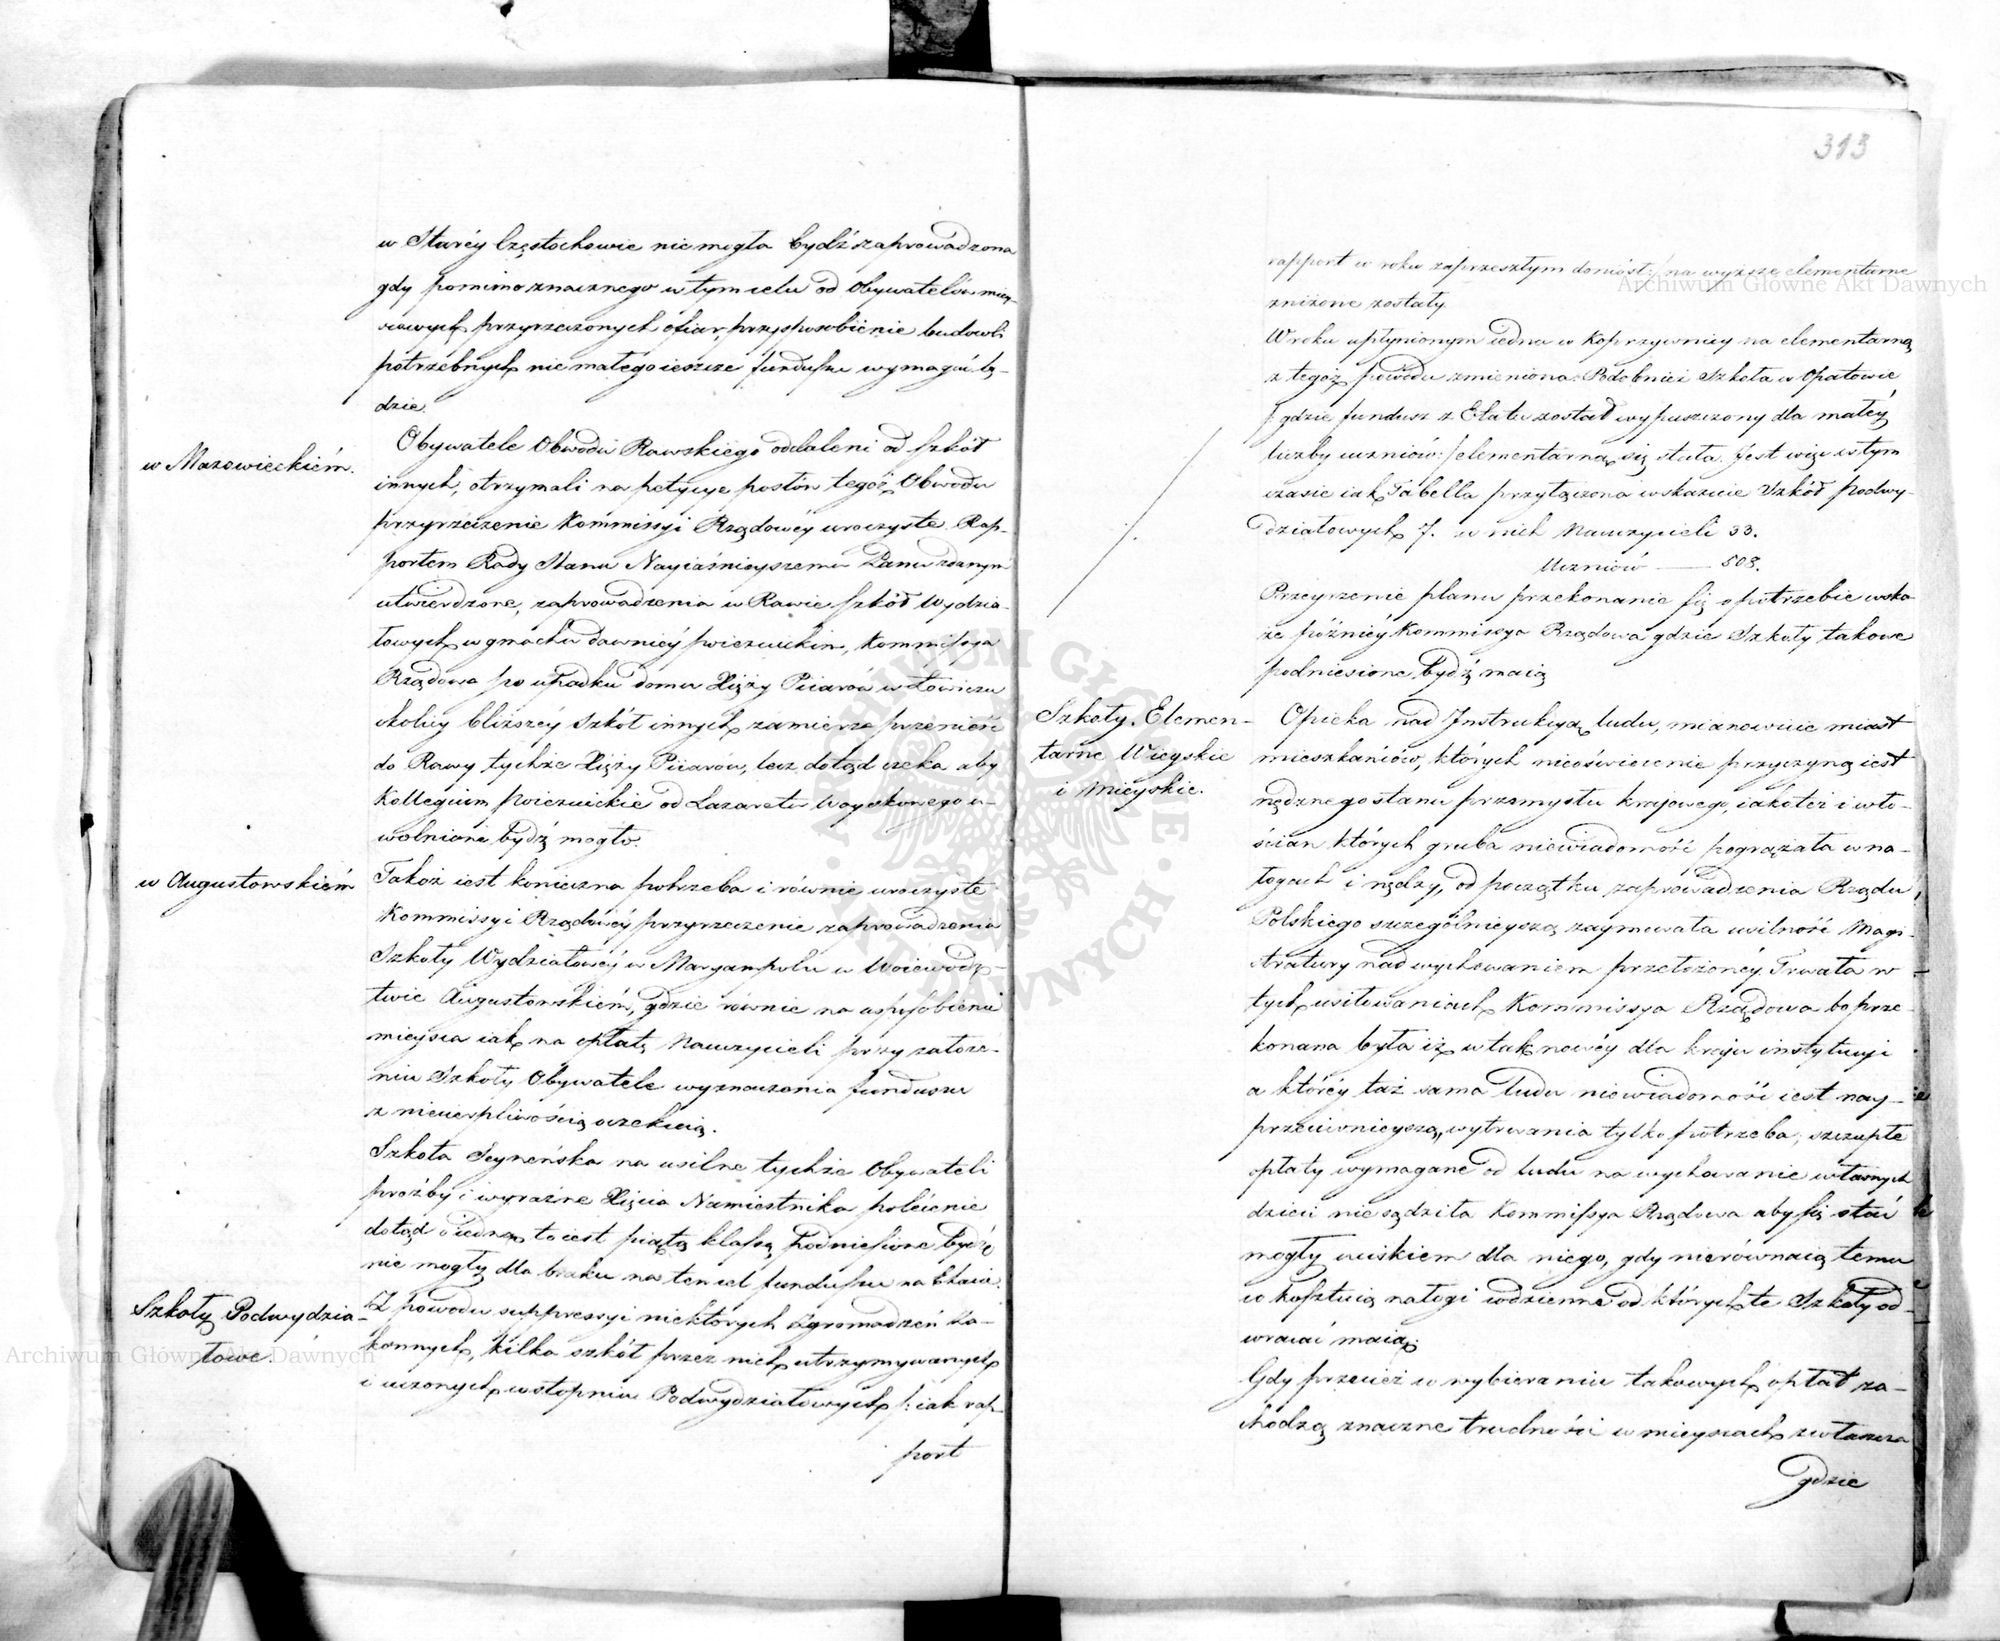 w Staréy Częstochowie nie mogła bydź zaprowadzona
gdy pomimo znacznego w tym celu od Obywatelów miey-
scowych przyrzeczonych ofiar, przysposobienie budowli
potrzebnych nie małego ieszcze funduszu wymagać bę-
dzie.
w Mazowieckiém.
Obywatele Obwodu Rawskiego oddaleni od szkół
innych, otrzymali na petycye posłów tegoż Obwodu
przyrzeczenie Kommissyi Rządowéy uroczyste Rap-
portem Rady Stanu Nayiaśnieyszemu Panu zdanym
utwierdzone, zaprowadzenia w Rawie szkół Wydzia-
łowych w gmachu dawniéy poiezuickim, Kommissya
Rządowa po upadku domu Xięży Piiarów w Łowiczu
okolicy bliższéy szkół innych zamierza przenieść
do Rawy tychże Xięży Piiarów, lecz dotąd czeka aby
Kollegium poiezuickie od Lazaretu Woyskowego u-
wolnione bydź mogło.
w Augustowskiém
Takoż iest konieczna potrzeba i równie uroczyste
Kommissyi Rządowéy przyrzeczenie zaprowadzenia
Szkoły Wydziałowéy w Maryampolu w Woiewódz-
twie Augustowskiém, gdzie równie na usposobienie
mieysca iak na opłatę Nauczycieli przy założe-
niu Szkoły Obywatele wyznaczenia funduszu
z niecierpliwością oczekuią.
Szkoła Seyneńska na usilne tychże Obywateli
proźby i wyraźne Xięcia Namiestnika polecenie
dotąd o iedną to iest piątą klassę podniesione bydź
nie mogły dla braku na ten cel funduszu na Etacie.
Szkoły Podwydzia-
łowe.
Z powodu suppressyi niektórych Zgromadzeń Za-
konnych, kilka szkół przez nich utrzymywanych
i uczonych w stopniu Podwydziałowych /: iak rap-
port
313
rapport w roku zaprzeszłym doniósł :/ na wyższe elementarne
zniżone zostały.
W roku upłynionym iedna w Koprzywnicy na elementarną
z tegoż powodu zmieniona. Podobnież Szkoła w Opatowie
/: gdzie fundusz z Etatu został wypuszczony dla małéy
liczby uczniów :/ elementarną się stała. Jest więc w tym
czasie iak Tabella przyłączona wskazuie Szkół podwy-
działowych 7. w nich Nauczycieli 33.
Uczniów —— 508.
Przeyrzenie planu przekonanie się o potrzebie wska-
że późniéy Kommissya Rządowa gdzie Szkoły takowe
podniesione bydź maią
Szkoły Elemen-
tarne Wieyskie
i Mieyskie.
Opieka nad Instrukcyą ludu, mianowicie miast
mieszkańców, których nieoświecenie przyczyną iest
nędznego stanu przemysłu kraiowego, iakoteż i wło-
ścian których gruba niewiadomość pogrążała w na-
łogach i nędzy, od początku zaprowadzenia Rządu
Polskiego szczególnieyszą zaymowała usilność Magi-
stratury nad wychowaniem przełożonéy. Trwała w
tych usiłowaniach Kommissya Rządowa bo prze-
konana była iż w tak nowéy dla kraju instytucyi
a któréy taż sama ludu niewiadomość iest nay-
przeciwnieyszą, wytrwania tylko potrzeba; szczupłe
opłaty wymagane od ludu na wychowanie własnych
dzieci nie sądziła Kommissya Rządowa aby się stać
mogły uciskiem dla niego, gdy nierównaią temu
co kosztuią nałogi codzienne od których te Szkoły od-
wracać maią.
Gdy przecież w wybieraniu takowych opłat za-
chodzą znaczne trudności w mieyscach zwłaszcza
gdzie
Archiwum Główne Akt Dawnych
Archiwum Główne Akt Dawnych
ARCHIWUM GŁÓWNE AKT DAWNYCH